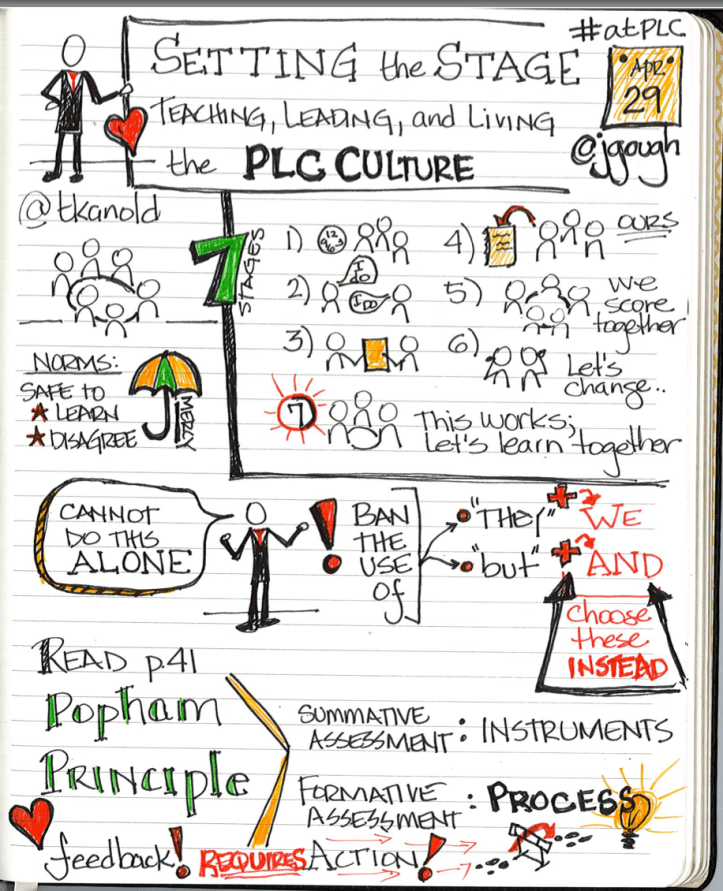 #atPLC
SETTING the STAGE
APR.
29
TEACHING, LEADING, and LIVING
the PLC CULTURE
@jgough
@tkanold
7 STAGES
1)
2) I do
I DO
3)
4) OURS
5) we
score
together
6) Let's
change..
7 This works;
Let's learn together
NORMS:
SAFE TO
LEARN
DISAGREE
CANNOT
DO THIS
ALONE
! BAN
THE
USE
OF
"THEY" WE
"but" AND
Choose
these
INSTEAD
READ p.41
Popham
PRINCIPLE
SUMMATIVE
ASSESSMENT : INSTRUMENTS
FORMATIVE
ASSESSMENT : PROCESS
feedback! REQUIRES ACTION!